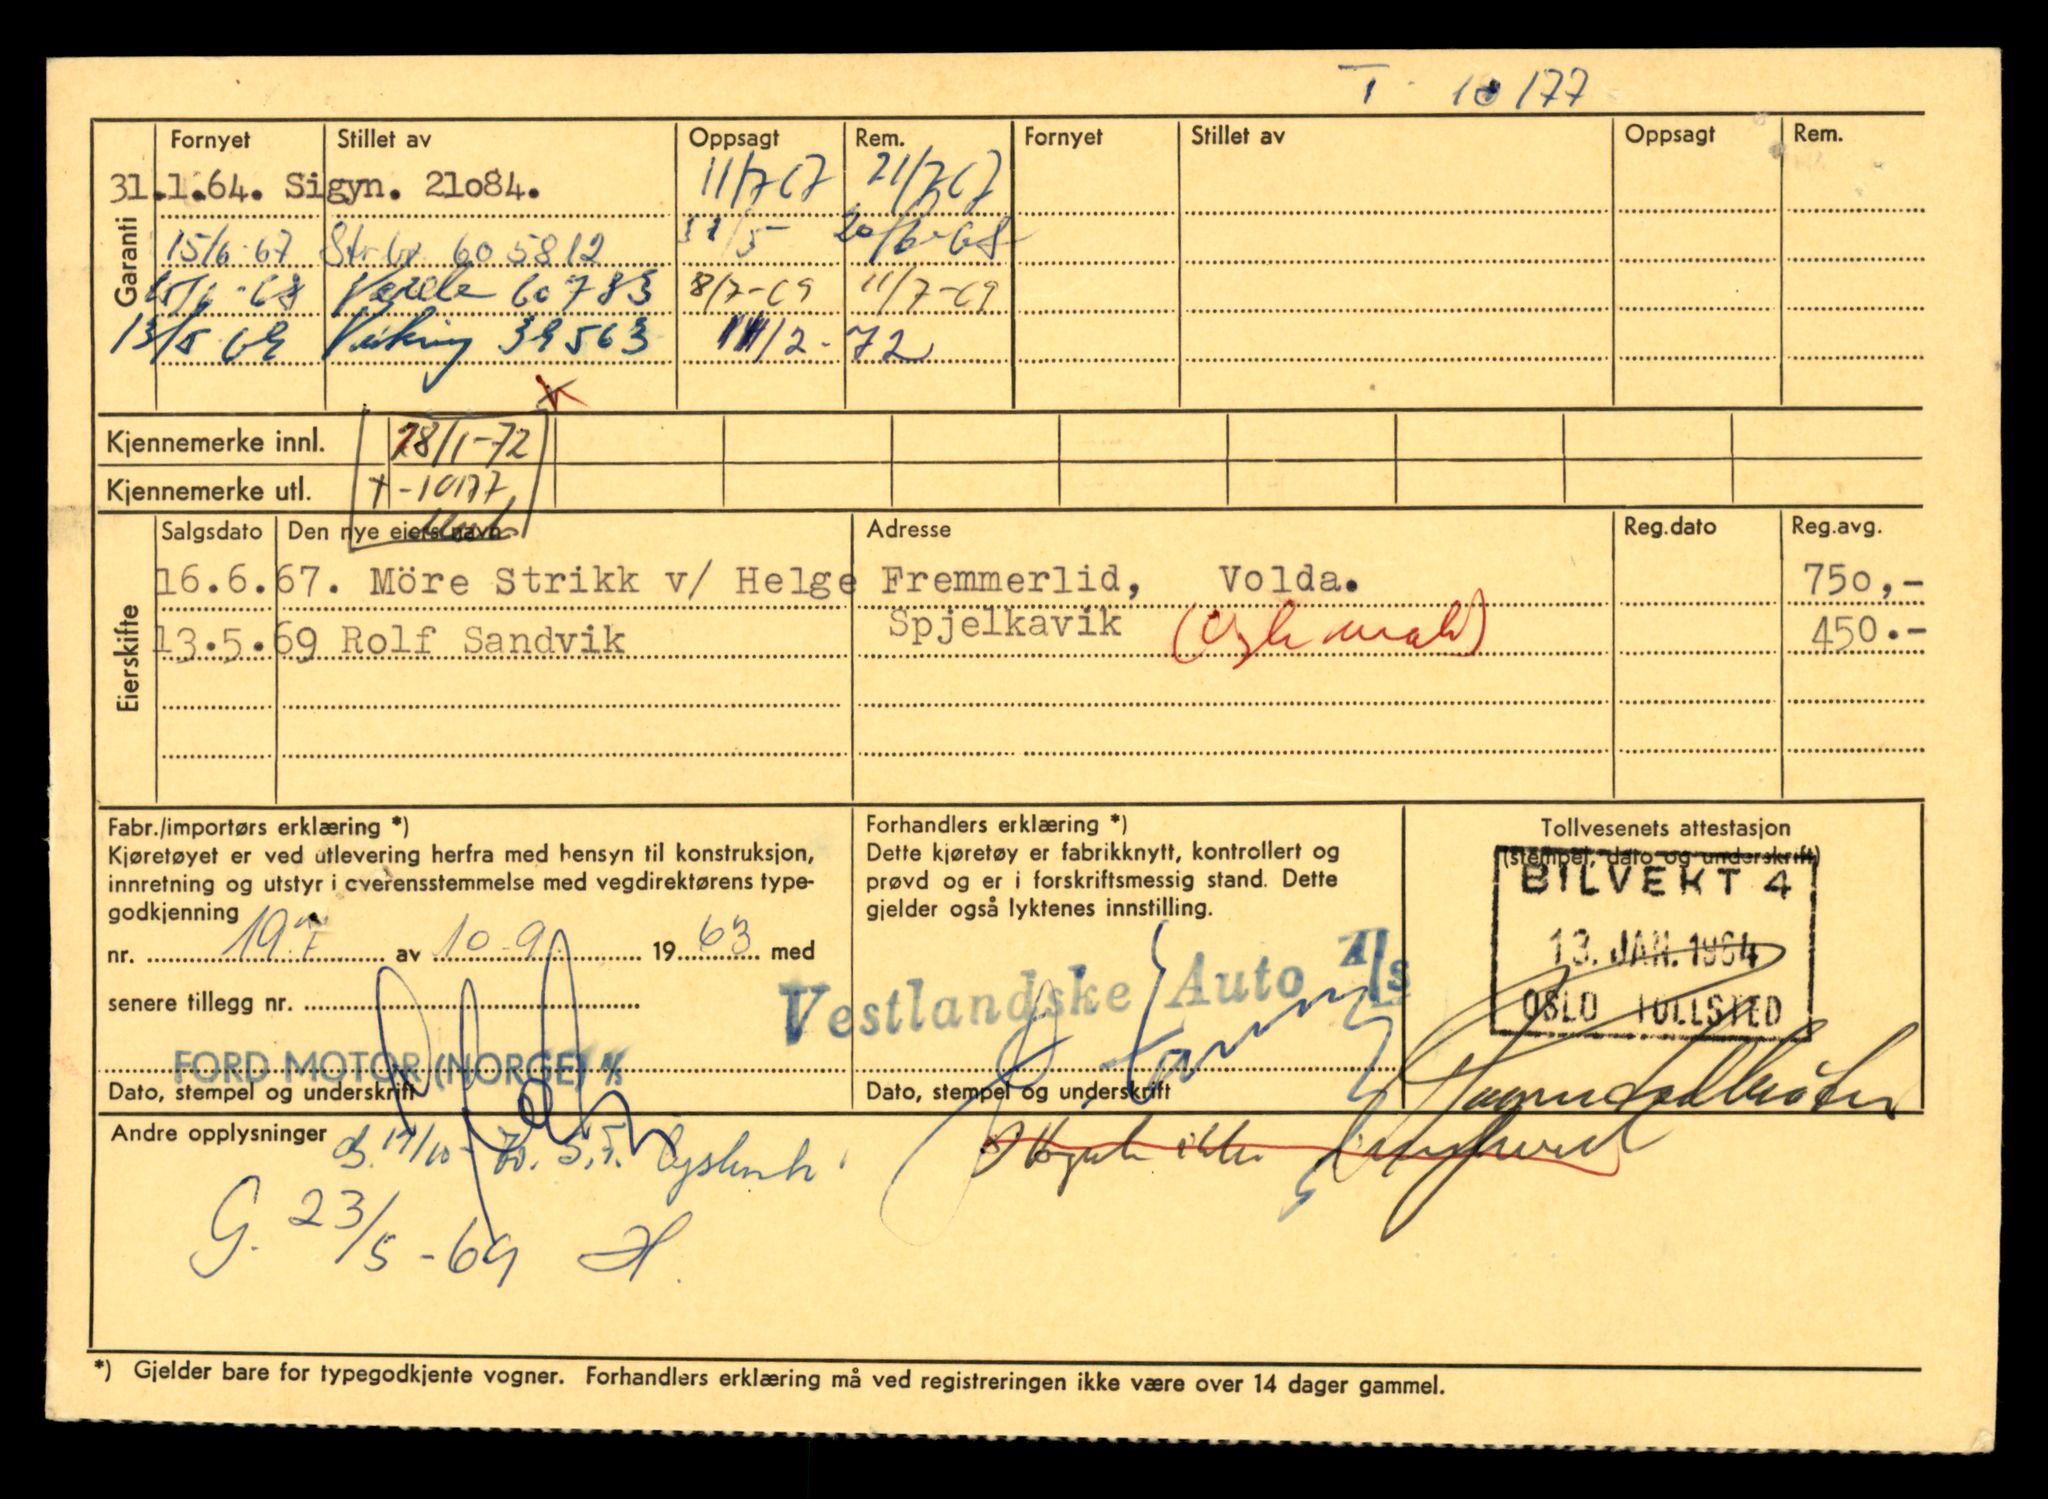 T - 10177
Fornyet Stillet av Oppsagt Rem. Fornyet Stillet av Oppsagt Rem.
Garanti
31.1.64. Sigyn. 21084. 11/7 67 21/7 67
15/6-67 Strbr 605812 31/5 20/6-68
15/6-68 60783 8/7-69 11/7-69
13/5 69 Viking 39563 11/2-72
Kjennemerke innl. 28/1-72
Kjennemerke utl. T-10177
Eierskifte
Salgsdato Den nye eiers navn Adresse Reg.dato Reg.avg.
16.6.67. Möre Strikk v/ Helge Fremmerlid, Volda. 750,-
13.5.69 Rolf Sandvik Spjelkavik 450.-
Fabr./importørs erklæring *)
Kjøretøyet er ved utlevering herfra med hensyn til konstruksjon,
innretning og utstyr i overensstemmelse med vegdirektørens type-
godkjenning
nr. 197 av 10-9. 1963 med
senere tillegg nr.
FORD MOTOR (NORGE) A/S
Dato, stempel og underskrift
Forhandlers erklæring *)
Dette kjøretøy er fabrikknytt, kontrollert og
prøvd og er i forskriftsmessig stand. Dette
gjelder også lyktenes innstilling.
Vestlandske Auto A/S
Dato, stempel og underskrift
Tollvesenets attestasjon
(stempel, dato og underskrift)
BILVEKT 4
13. JAN. 1964
OSLO TOLLSTED
Andre opplysninger
G. 23/5-69 H.
*) Gjelder bare for typegodkjente vogner. Forhandlers erklæring må ved registreringen ikke være over 14 dager gammel.